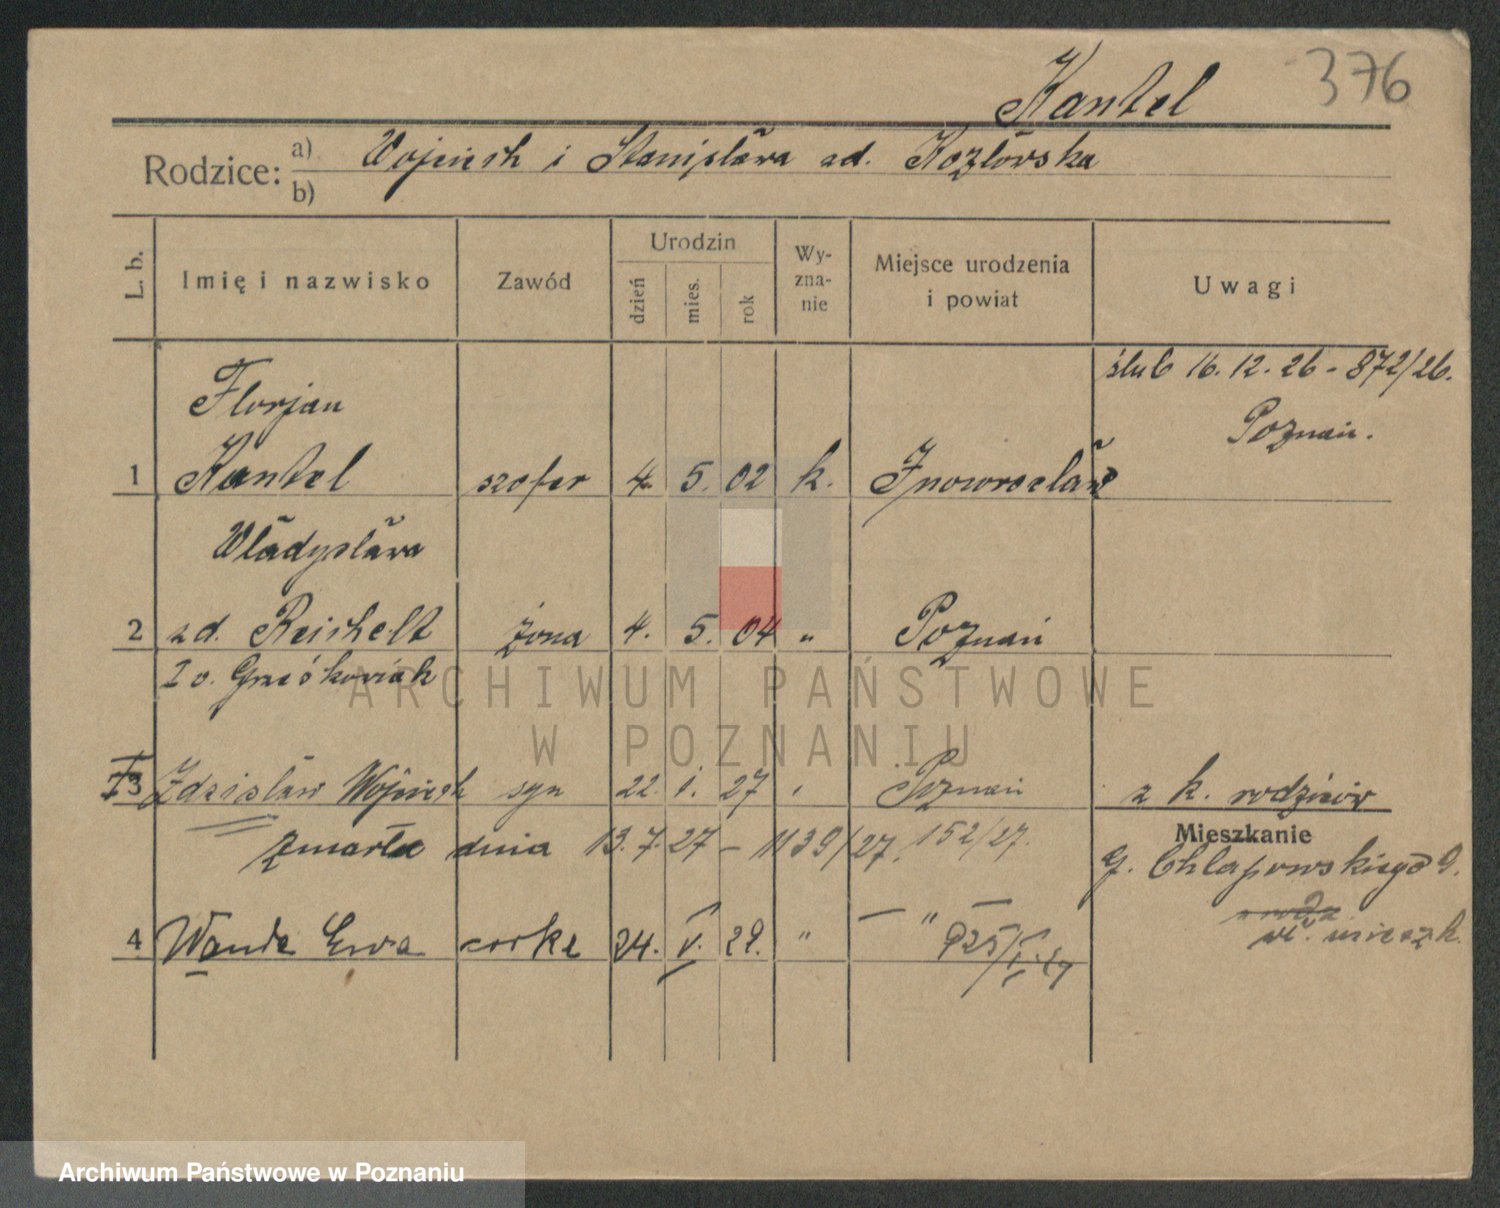 Kantel 376
Rodzice: a) Wojciech i Stanisława zd. Kozłowska
b)
L. b. Imię i nazwisko Zawód Urodzin dzień mies. rok Wyznanie Miejsce urodzenia i powiat Uwagi
ślub 16. 12. 26 - 872/26.
Florjan Poznań.
1 Kantel szofer 4. 5. 02 k. Inowrocław
Władysława
2 zd. Reichelt żona 4. 5. 04 " Poznań
I o. Grześkowiak
ARCHIWUM PAŃSTWOWE
W POZNANIU
3 Zdzisław Wojciech syn 22. 1. 27 " Poznań z k. rodziców
Mieszkanie
zmarła dnia 13. 7. 27 - 1139/27. 152/27. G. Chłapowskiego 9.
wł. mieszk.
4 Wanda Ewa córka 24. V. 29. " — " — 925/V.
Archiwum Państwowe w Poznaniu